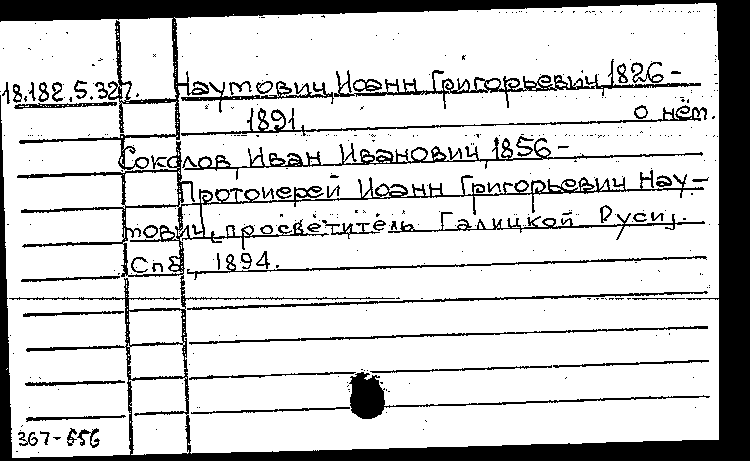 18.182.5.327. Наумович, Иоанн Григорьевич, 1826-
1891, о нём.
Соколов, Иван Иванович, 1856-
Протоиерей Иоанн Григорьевич Нау-
мович, просветитель Галицкой Руси,.
Спб., 1894.
367-556